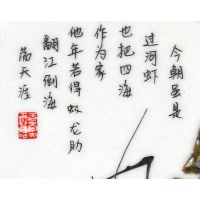 今朝虽是
过河虾
也把四海
作为家
他年若得蛟龙助
翻江倒海
荡天涯